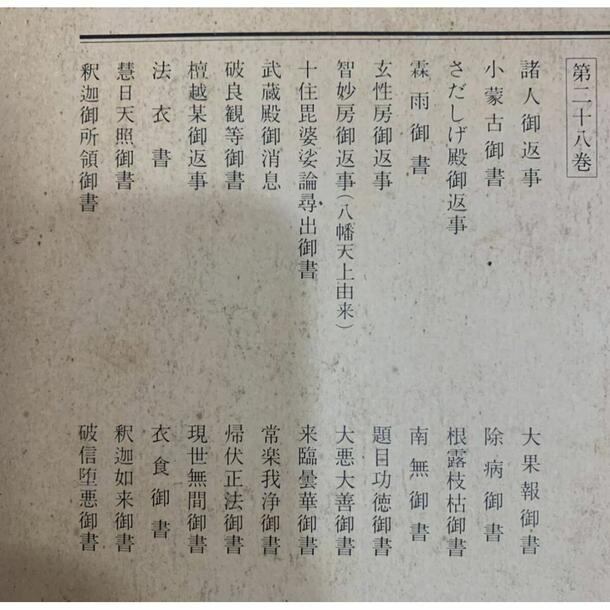 第二十八巻
諸人御返事
小蒙古御書
さだしげ殿御返事
霖雨御書
玄性房御返事
智妙房御返事(八幡天上由来)
十住毘婆娑論尋出御書
武蔵殿御消息
破良観等御書
檀越某御返事
法衣書
慧日天照御書
釈迦御所領御書
大果報御書
除病御書
根露枝枯御書
南無御書
題目功徳御書
大悪大善御書
来臨曇華御書
常楽我浄御書
帰伏正法御書
現世無間御書
衣食御書
釈迦如来御書
破信堕悪御書